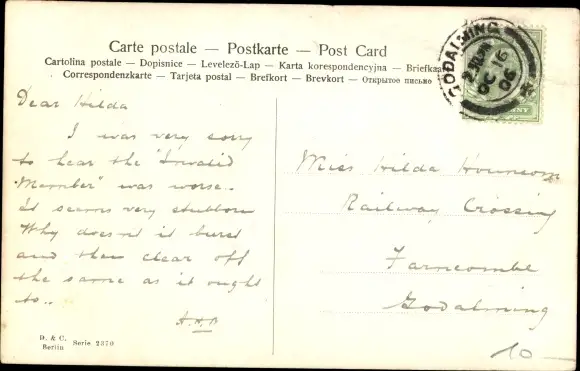 Carte postale — Postkarte — Post Card
Cartolina postale — Dopisnice — Levelező-Lap — Karta korespondencyjna — Briefkaart
Correspondenzkarte — Tarjeta postal — Brefkort — Brevkort — Открытое письмо
GODALMING
OC 16
06
Dear Hilda
I was very sorry
to hear the "Invalid
Member" was worse.
It seems very stubborn
Why doesn't it burst
and then clear off
the same as it ought
to..
A.A.B
Miss Hilda Hounsom
Railway Crossing
Farncombe
Godalming
D. & C.
Berlin Serie 2370
10